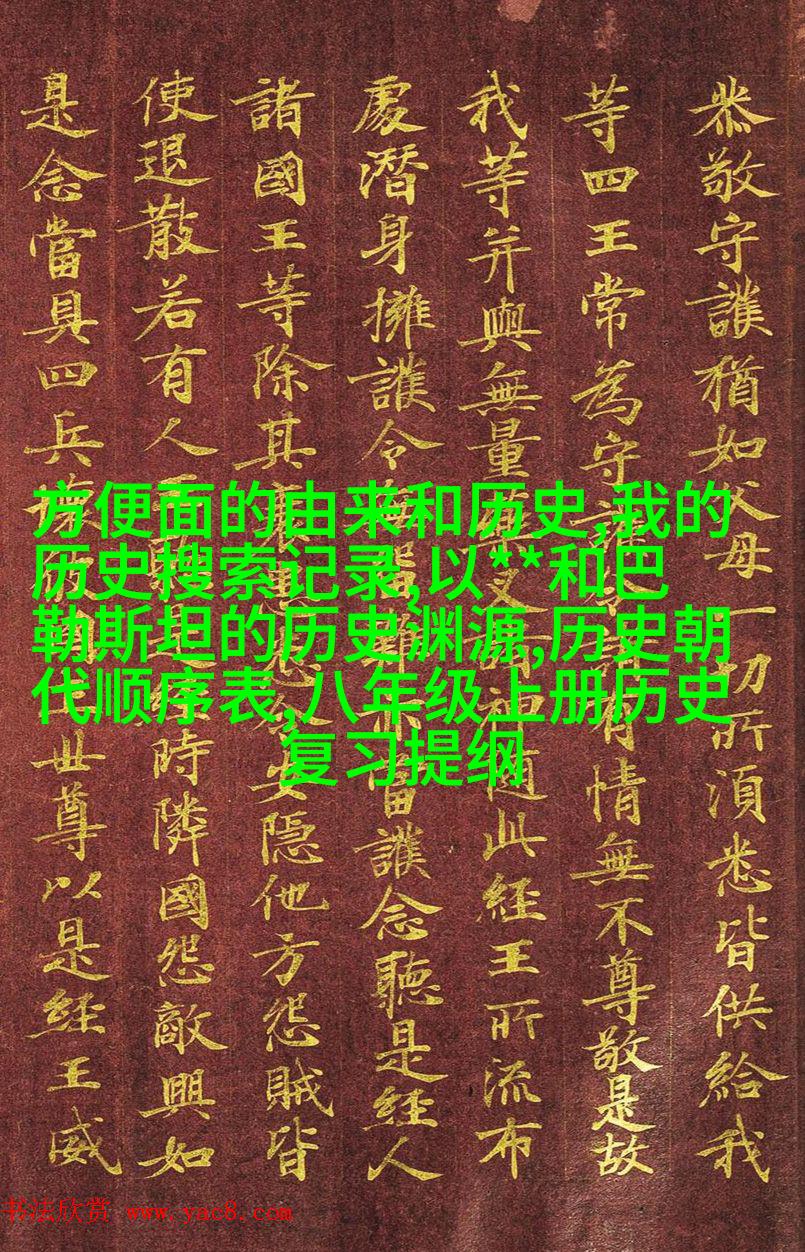 恭敬守護猶如父母一切所須悉皆供給我
等四王常為守護諸有情無不尊敬是故
我等并與無量藥叉諸神隨此經王所流布
處潛身擁護令留難當護念聽是經人
諸國王等除其衰患悉令安隱他方怨賊皆
使退散若有人王聽是經時隣國怨敵興如
是念當具四兵壞彼國土世尊以是經王威
方便面的由来和历史,我的
历史搜索记录,以**和巴
勒斯坦的历史渊源,历史朝
代顺序表,八年级上册历史
复习提纲
书法欣赏 www.yac8.com